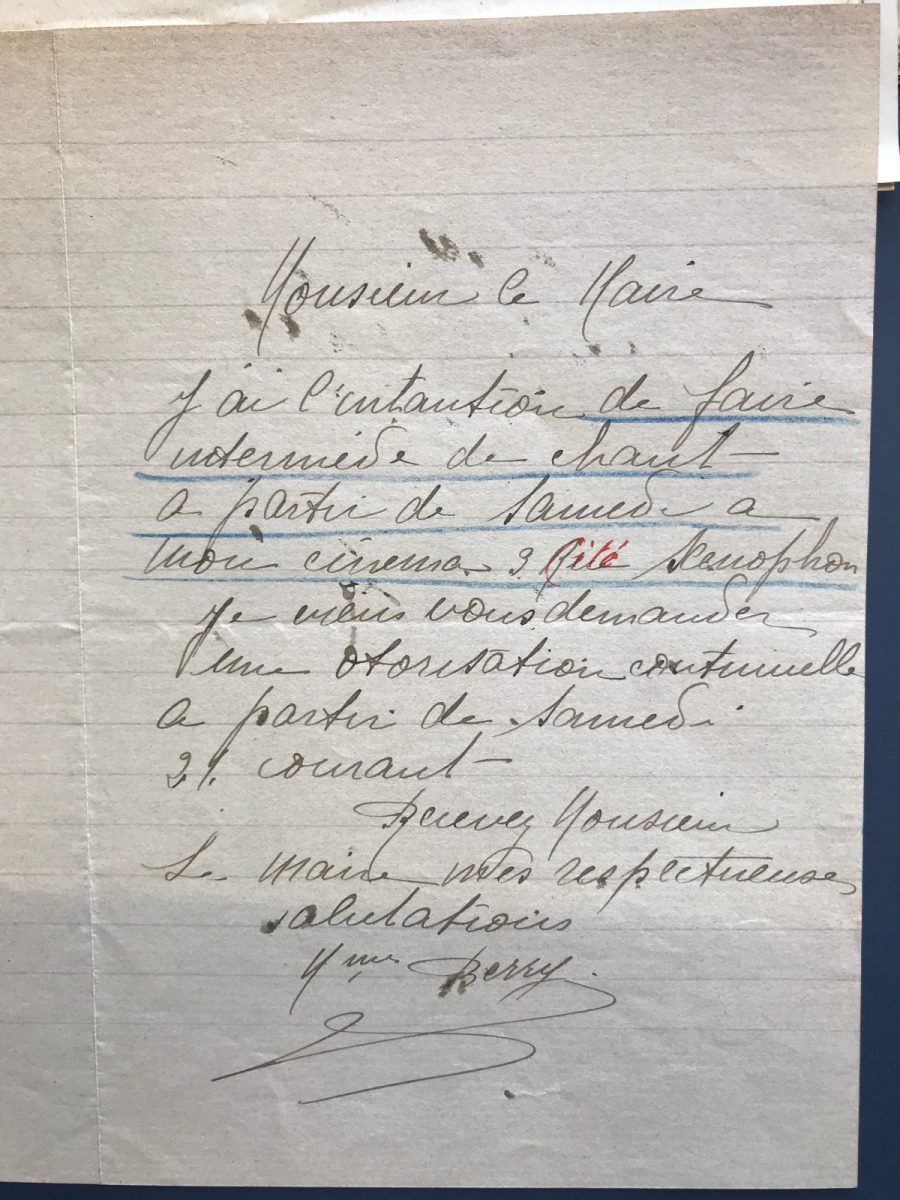 Monsieur le Maire
J'ai l'intantion de faire
intermède de chant
a partir de Samedi a
mon cinema 9 Cité Xenophon
Je viens vous demander
une otorisation continuelle
a partir de Samedi
21 courant
Recevez Monsieur
Le Maire mes respectueuses
salutations
Mme Berry